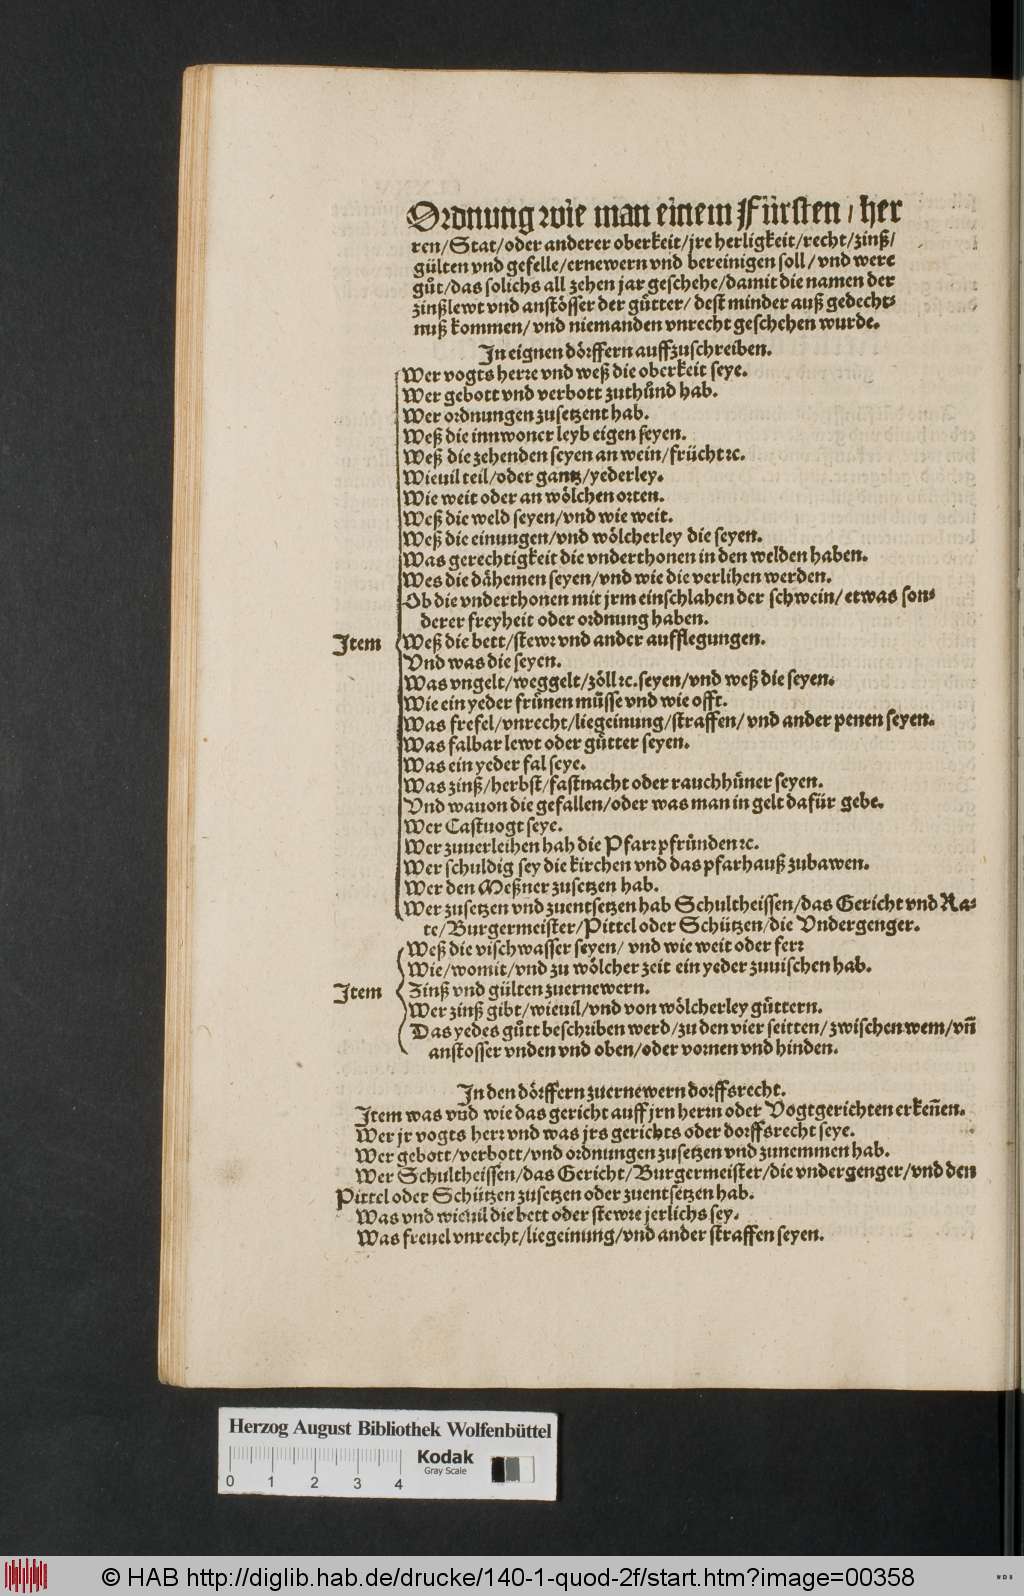 Ordnung wie man einem Fürsten / her
ren/Stat/oder anderer oberkeit/jre herligkeit/recht/zinß/
gülten vnd gefelle/ernewern vnd bereinigen soll/vnd were
gůt/das solichs all zehen jar geschehe/damit die namen der
zinßlewt vnd anstösser der gütter/ dest minder auß gedecht⸗
nuß kommen/ vnd niemanden vnrecht geschehen wurde.
In eignen dörffern auffzuschreiben.
Wer vogts herꝛe vnd weß die oberkeit seye.
Wer gebott vnd verbott zuthůnd hab.
Wer ordnungen zusetzent hab.
Weß die innwoner leyb eigen seyen.
Weß die zehenden seyen an wein/frücht ꝛc.
Wieuil teil/oder gantz/yederley.
Wie weit oder an wölchen orten.
Weß die weld seyen/vnd wie weit.
Weß die einungen/vnd wölcherley die seyen.
Was gerechtigkeit die vnderthonen in den welden haben.
Wes die dähemen seyen/vnd wie die verlihen werden.
Ob die vnderthonen mit jrm einschlahen der schwein/ etwas son⸗
derer freyheit oder ordnung haben.
Item Weß die bett/stewꝛ vnd ander aufflegungen.
Vnd was die seyen.
Was vngelt/weggelt/zöll ꝛc. seyen/vnd weß die seyen.
Wie ein yeder frünen müsse vnd wie offt.
Was frefel/vnrecht/liegeinung/straffen/ vnd ander penen seyen.
Was falbar lewt oder gütter seyen.
Was ein yeder fal seye.
Was zinß/herbst/fastnacht oder rauchhüner seyen.
Vnd wauon die gefallen/oder was man in gelt dafür gebe.
Wer Castuogt seye.
Wer zuuerleihen hab die Pfarꝛpfründen ꝛc.
Wer schuldig sey die kirchen vnd das pfarhauß zubawen.
Wer den Meßner zusetzen hab.
Wer zusetzen vnd zuentsetzen hab Schultheissen/das Gericht vnd Ra⸗
te/Burgermeister/Pittel oder Schützen/die Vndergenger.
Weß die vischwasser seyen/ vnd wie weit oder ferꝛ
Wie/womit/vnd zu wölcher zeit ein yeder zuuischen hab.
Item Zinß vnd gülten zuernewern.
Wer zinß gibt/wieuil/vnd von wölcherley güttern.
Das yedes gůtt beschriben werd/zu den vier seitten/zwischen wem/vn̄
anstosser vnden vnd oben/oder vornen vnd hinden.
In den dörffern zuernewern dorffsrecht.
Item was vnd wie das gericht auff jrn herꝛn oder Vogtgerichten erken̄en.
Wer jr vogts herꝛ vnd was jrs gerichts oder dorffsrecht seye.
Wer gebott/verbott/vnd ordnungen zusetzen vnd zunemmen hab.
Wer Schultheissen/das Gericht/Burgermeister/die vndergenger/vnd den
Pittel oder Schützen zusetzen oder zuentsetzen hab.
Was vnd wieuil die bett oder stewꝛe jerlichs sey.
Was freuel vnrecht/liegeinung/vnd ander straffen seyen.
Herzog August Bibliothek Wolfenbüttel
Kodak
Gray Scale
0 1 2 3 4
© HAB http://diglib.hab.de/drucke/140-1-quod-2f/start.htm?image=00358